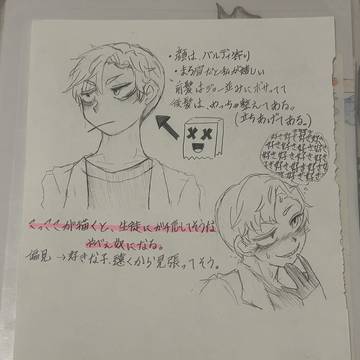 ・顔は、バルディ寄り
・まろ眉だと私が嬉しい
前髪はジョー並みにボサってて
後髪は、めっちゃ整えてある。
(立ちあげてある。)
好き好き好き好き
好き好き好き好き
好き好き好き好き
好き好き好き好き
好き好き好き
てってが描くと、生徒にガチ恋してそうな
やべぇ奴になる。
偏見 → 好きな子、遠くから見張ってそう。